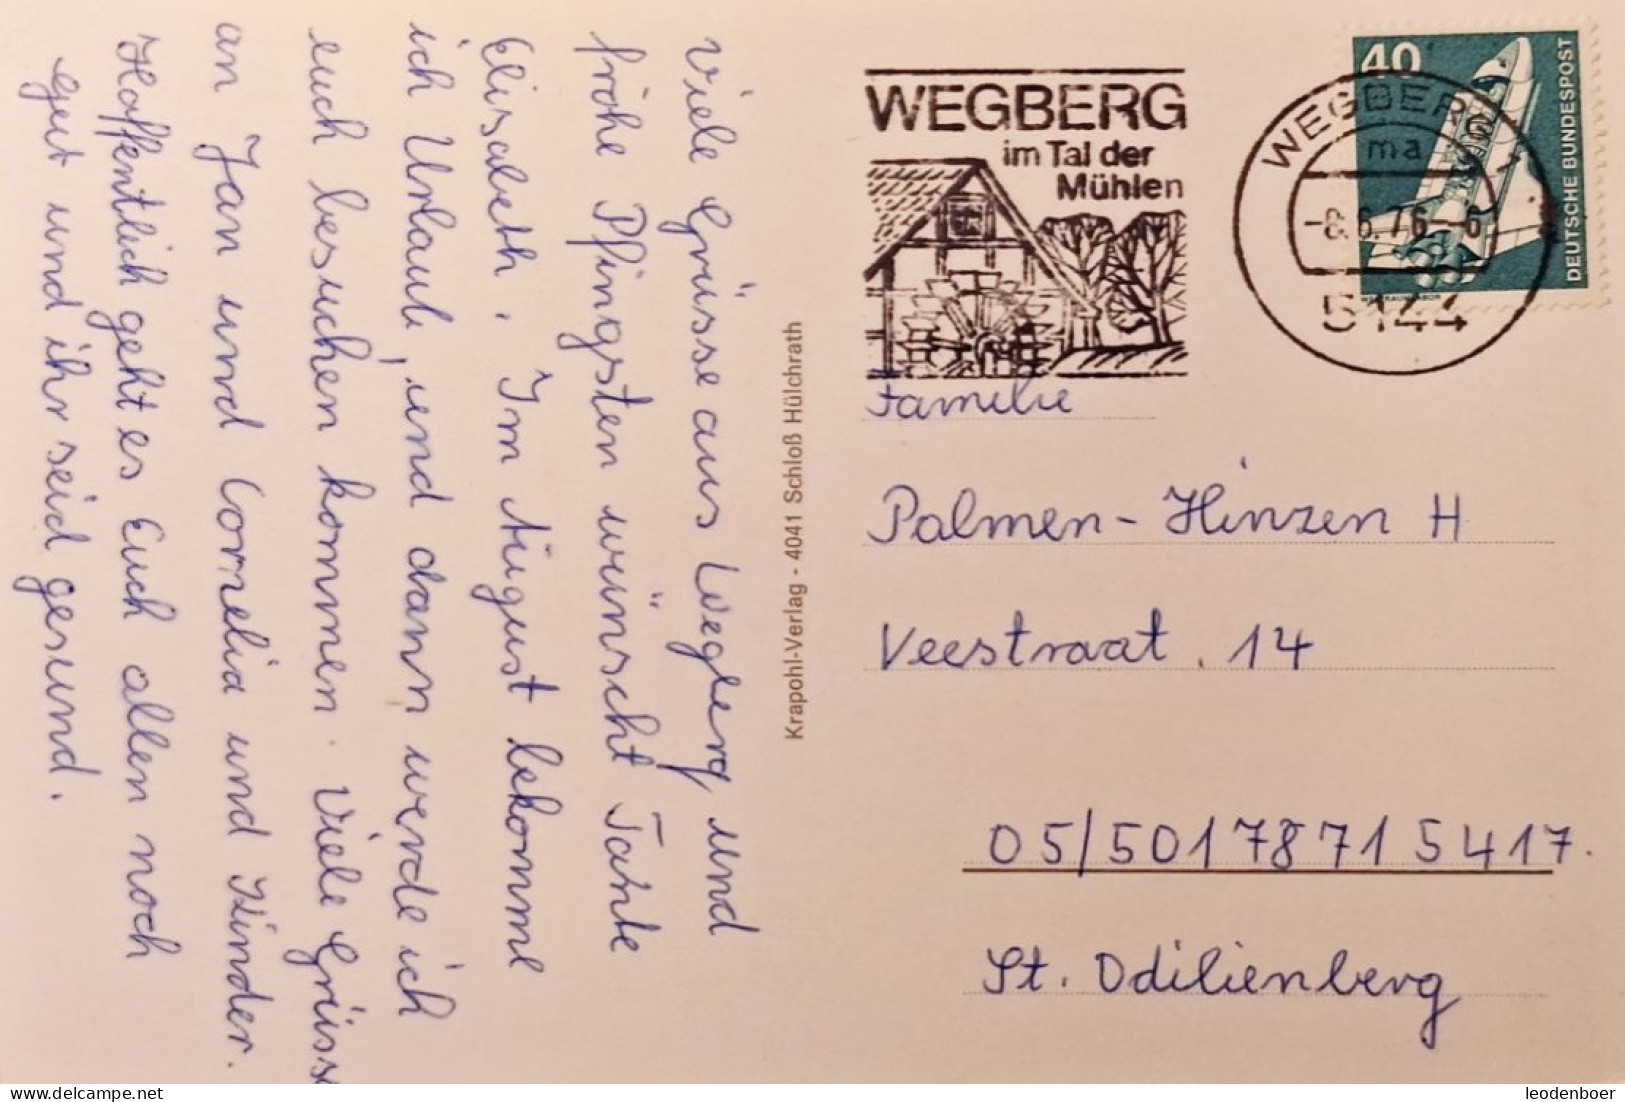 Viele Grüsse aus Wegberg und
fröhe Pfingsten wünscht Tante
Elisabeth. Im August bekomme
ich Urlaub, und dann werde ich
euch besuchen kommen. Viele Grüsse
an Jan und Cornelia und Kinder.
Hoffentlich geht es Euch allen noch
gut und ihr seid gesund.
Krapohl-Verlag - 4041 Schloß Hülchrath
WEGBERG
im Tal der
Mühlen
WEGBERG 1
ma
-8.6.76-6
5144
40
DEUTSCHE BUNDESPOST
Familie
Palmen-Hinzen H
Veestraat. 14
05/50178715417.
St. Odilienberg
delcampe.net
leodenboer